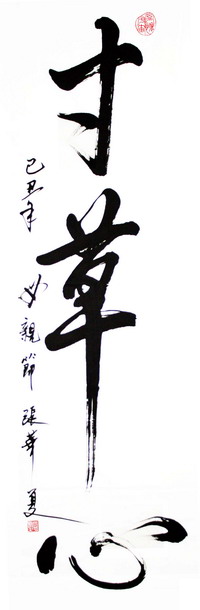 寸草心
己丑年 母親節 張華夏